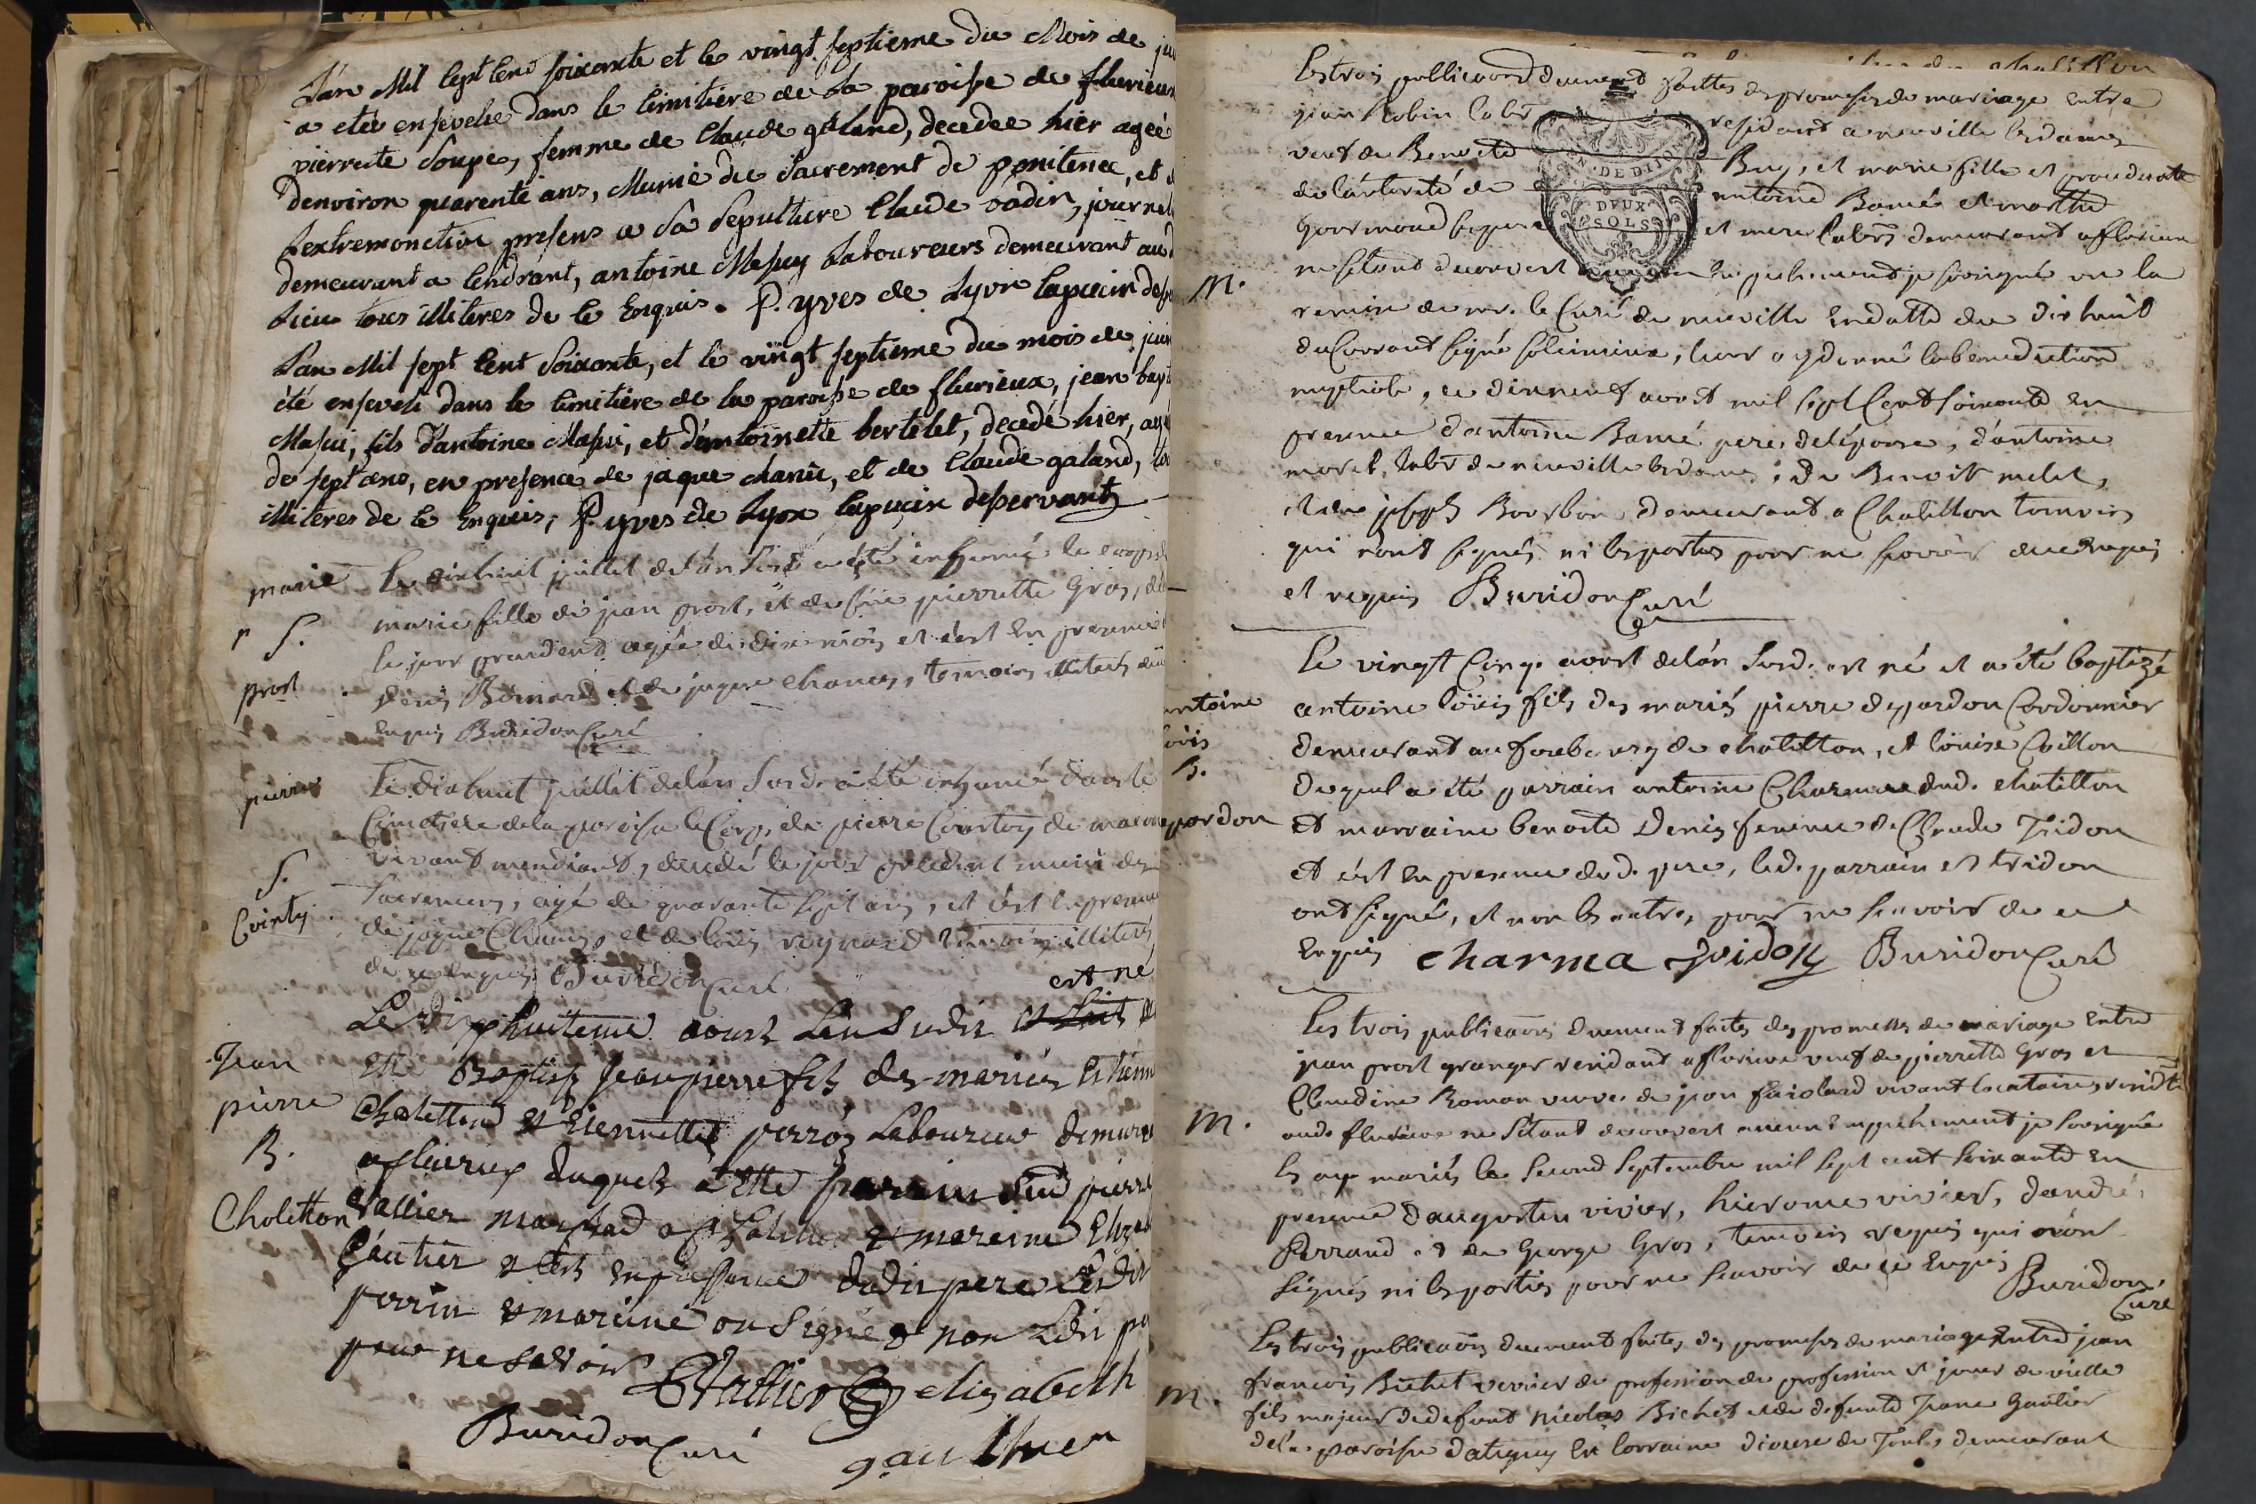 L'an Mil sept cent soixante et le vingt septieme du Mois de
a eteé ensevelie dans le cimitiere de La paroisse de flurieux
pierrette Soupe, femme de Claude galand, decedeé hier ageé
d'environ quarente ans, Munie du Sacrement de penitence, et
l'extremonction presens a Sa Sepulture Claude vadin,
demeurant a lendrant, antoine Masuy Laboureurs demeurant au
Lieu tous illiteres de ce Enquis. f. yves de Lyon capucin
L'an Mil sept Cent Soixante, et le vingt septieme du mois de
été enseveli dans le cimitiere de la paroisse de flurieux, jean
Masui, fils d'antoine Masui, et d'antoinette bertelet, decedé hier,
de sept ans, en presence de jaque chanü, et de Claude galand,
illiteres de ce Enquis; f. yves de Lyon Capucin desservant
marie
S.
prost
Le dixhuit juillet de l'an susd a été inhumé le corps
marie fille de jean prost, et de feüe pierrette Gros,
le jour precedend agée de dix mois et c'est en presence
denis Bernard et de jaque Chanus, temoins illiterés
enquis Buridon Curé
pierre
S.
Courtoy
Le dixhuit juillet de l'an Susd. a été inhumé dans le
Cimetiere de la paroisse le Corps de pierre Courtoy de macon
vivant mendiant, decedé le jour precedent muni des
Sacremens, agé de quarante sept ans, et c'est en presence
de jaque Chanus, et de loüis reynard temoins illiterés
de ce enquis Buridon Curé
est né
Jean
pierre
B.
Choletton
Le dixhuiteme aoust L'an Susdit
etté Baptisé Jean pierre fils des mariés
Choletton et Etiennette perroz Laboureur
a flurieux duquel a etté parrain Sieud pierre
Vallier marchad a Chatillon et mareine
Gautier et c'est en presence dudit pere
parrin et mareine on Signé et non
pour ne Savoir
Vallier elizabeth
Buridon Curé gauthier
Les trois publicaons duement faittes des promesses de mariage entre
jean Robin labr residant a neuville lesdames
veuf de Benoite Buy, et marie fille et procedante
de l'autorité de antoine Bamé et marthe
Gourmand ses pere et mere labrs demeurant a flurieux
M.
ne s'etant decouvert aucun empechement je soussigné vu la
remise de mr. le Curé de neuville en datte du dix huit
du Courant signé solimieux, leur ay donné la benediction
nuptiale, ce dixneuf aoust mil sept Cent soixante en
presence d'antoine Bamé pere de l'epouse, d'antoine
morel, labr de neuville lesdames, de Benoist melet,
et de joseph Bourbon demeurant a Chatillon temoins
qui n'ont signés ni les parties pour ne sçavoir de ce enquis
et requis Buridon Curé
antoine
loüis
B.
depardon
Le vingt Cinq aoust de l'an Susd. est né et a été baptizé
antoine loüis fils des mariés pierre depardon Cordonnier
demeurant au fauboursg de chatillon, et loüise Coillon
duquel a été parrain antoine Charmas dud. chatillon
et marraine benoite Denis femme de Claude Tridon
et c'est en presence dud. pere, led. parrain et tridon
ont signé, et non les autres, pour ne sçavoir de ce
enquis charma tridon Buridon Curé
Les trois publicaons duement faites des promesses de mariage entre
jean prost granger residant a flurieux veuf de pierrette Gros et
Claudine Roman veuve de jean faiolard vivant locataire, residte
M.
aud. flurieux ne s'etant decouvert aucun empechement je soussigné
les ay mariés le second septembre mil sept cent soixante en
presence d'augustin vivier, hierome vivier, d'andré
Perrand et de George Gros, temoins requis qui n'ont
signés ni les parties pour ne scavoir de ce enquis
Buridon
Curé
M.
Les trois publicaons duement faites des promesses de mariage entre jean
francois Bichet verrier de profession de profession et joueur de vielle
fils majeur de defunt nicolas Bichet et de defunte Jeanne Gautier
de la paroisse d'atigny en lorraine diocese de Toul, demeurant